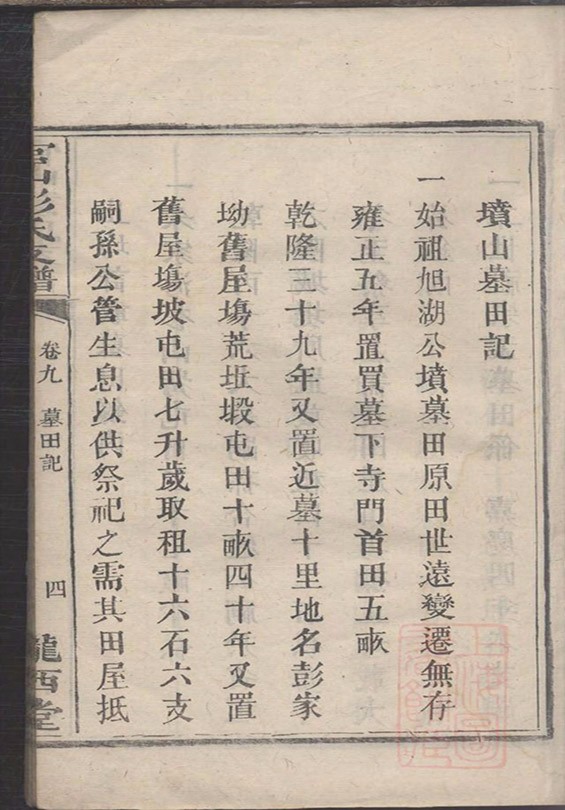 墳山墓田記
一始祖旭湖公墳墓田原田世遠變遷無存
雍正五年置買墓下寺門首田五畝
乾隆三十九年又置近墓十里地名彭家
坳舊屋塲荒坵塅屯田十畝四十年又置
舊屋塲坡屯田七升歲取租十六石六支
嗣孫公管生息以供祭祀之需其田屋抵
彭氏支譜
卷九
墓田記
四
隴西堂